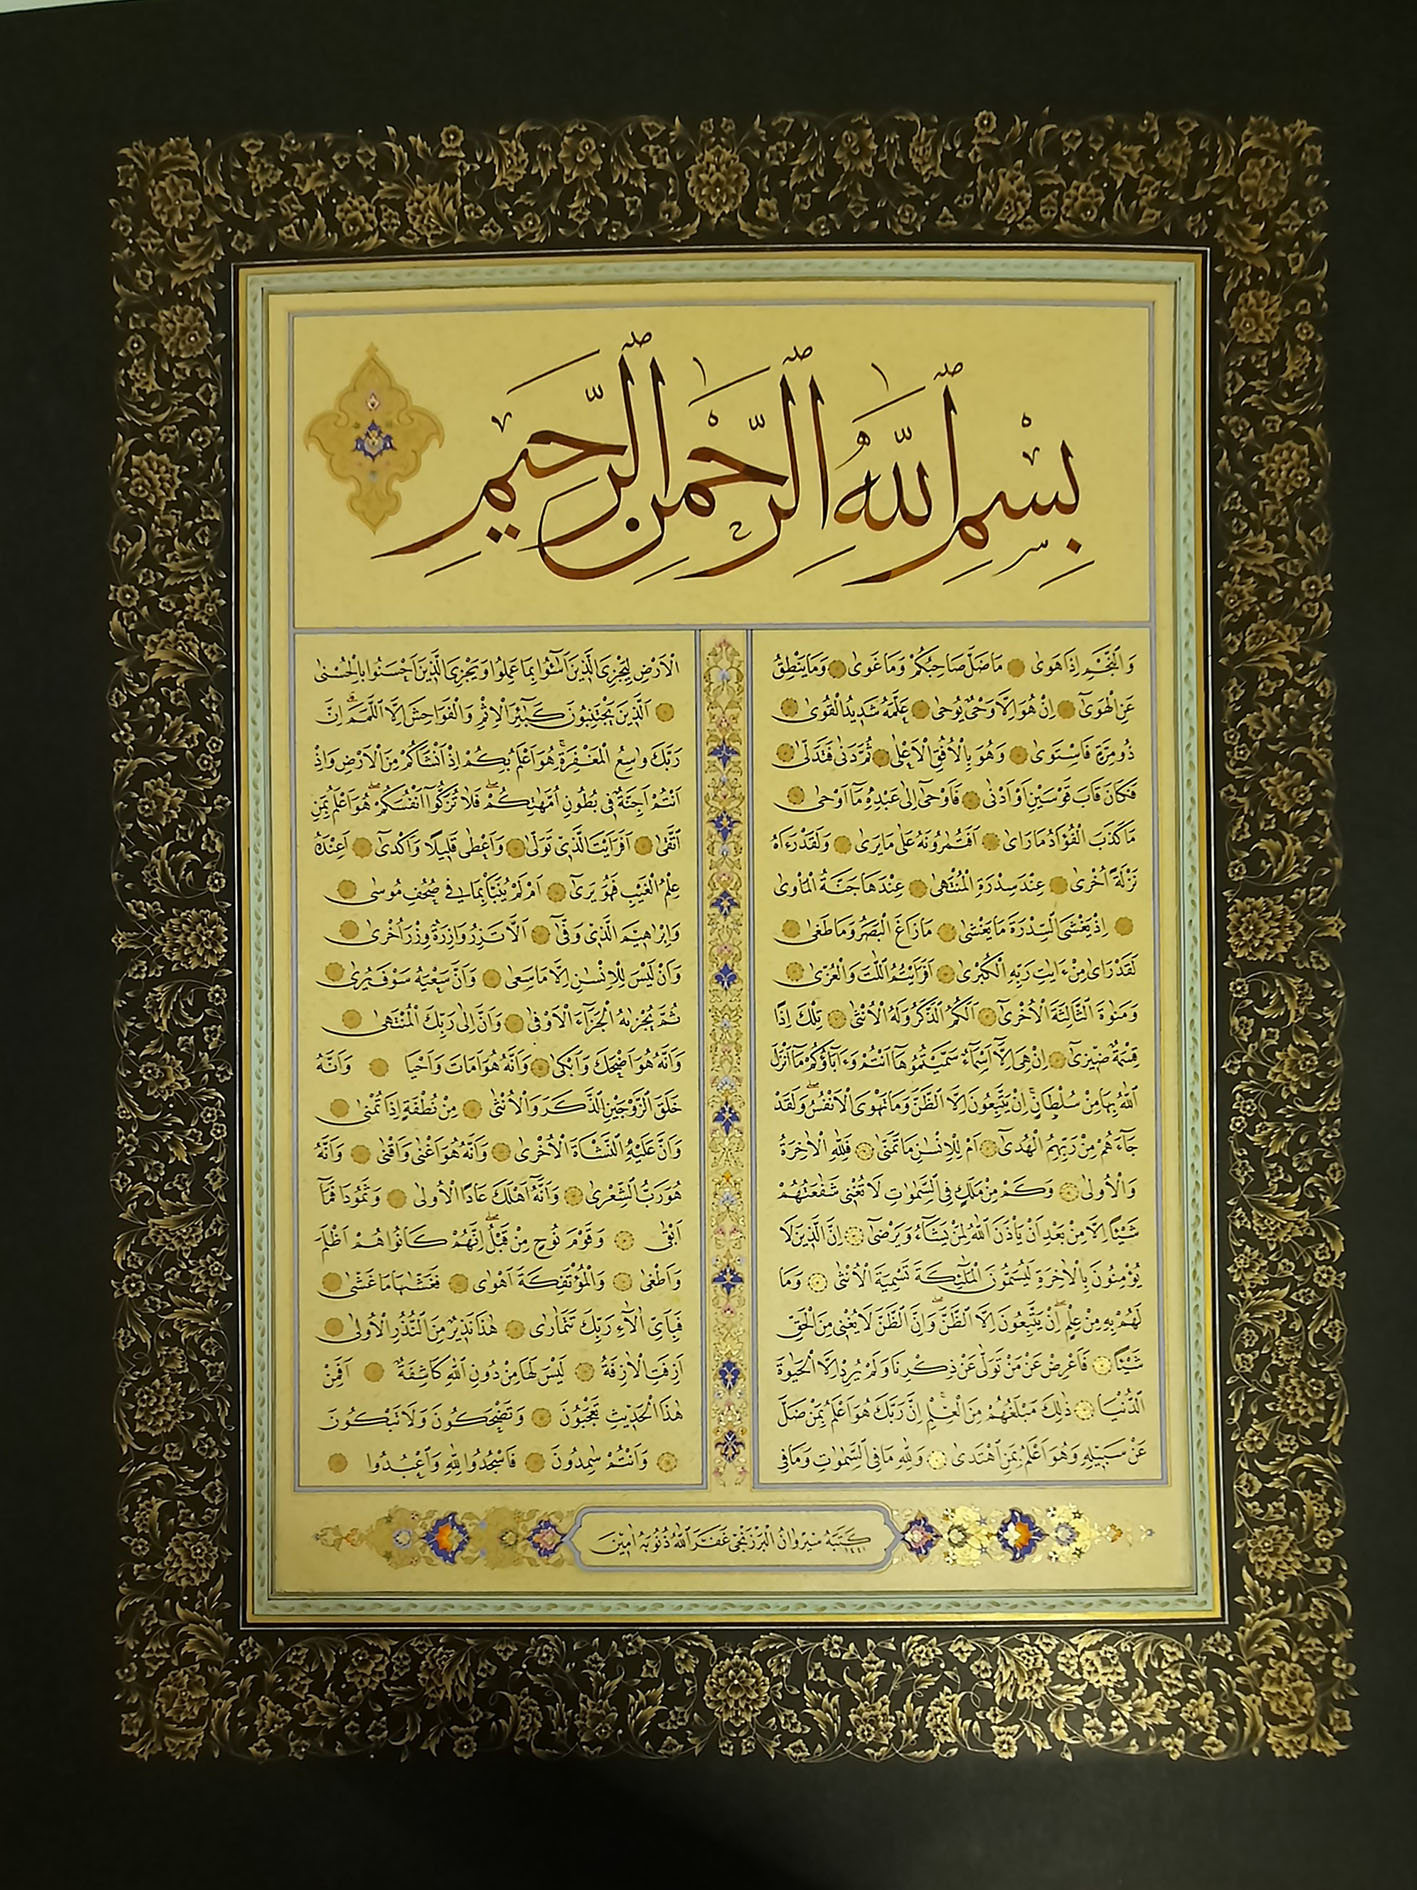 بِسْمِ ٱللَّهِ ٱلرَّحْمٰنِ ٱلرَّحِيمِ
وَٱلنَّجْمِ اِذَا هَوٰى مَا ضَلَّ صَاحِبُكُمْ وَمَا غَوٰى وَمَا يَنْطِقُ
عَنِ الْهَوٰىٓ اِنْ هُوَ اِلَّا وَحْىٌ يُوحٰى عَلَّمَهُ شَدِيدُ الْقُوٰى
ذُو مِرَّةٍ فَاسْتَوٰى وَهُوَ بِالْاُفُقِ الْاَعْلٰى ثُمَّ دَنٰى فَتَدَلّٰى
فَكَانَ قَابَ قَوْسَيْنِ اَوْ اَدْنٰى فَاَوْحٰى اِلٰى عَبْدِهِ مَآ اَوْحٰى
مَا كَذَبَ الْفُؤَادُ مَا رَاٰى اَفَتُمٰرُونَهُ عَلٰى مَا يَرٰى وَلَقَدْ رَءَاهُ
نَزْلَةً اُخْرٰى عِنْدَ سِدْرَةِ الْمُنْتَهٰى عِنْدَهَا جَنَّةُ الْمَأْوٰى
اِذْ يَغْشَى ٱلسِّدْرَةَ مَا يَغْشٰى مَا زَاغَ الْبَصَرُ وَمَا طَغٰى
لَقَدْ رَاٰى مِنْ ءَايٰتِ رَبِّهِ الْكُبْرٰى اَفَرَاَيْتُمُ ٱللّٰتَ وَالْعُزّٰى
وَمَنٰوةَ الثَّالِثَةَ الْاُخْرٰىٓ اَلَكُمُ ٱلذَّكَرُ وَلَهُ الْاُنْثٰى تِلْكَ اِذًا
قِسْمَةٌ ضِيزٰىٓ اِنْ هِىَ اِلَّآ اَسْمَآءٌ سَمَّيْتُمُوهَآ اَنْتُمْ وَءَابَآؤُكُمْ مَآ اَنْزَلَ
ٱللّٰهُ بِهَا مِنْ سُلْطَانٍ اِنْ يَتَّبِعُونَ اِلَّا ٱلظَّنَّ وَمَا تَهْوَى الْاَنْفُسُ وَلَقَدْ
جَآءَهُمْ مِنْ رَبِّهِمُ الْهُدٰىٓ اَمْ لِلْاِنْسٰنِ مَا تَمَنّٰى فَلِلّٰهِ الْاٰخِرَةُ
وَالْاُولٰى وَكَمْ مِنْ مَلَكٍ فِى ٱلسَّمٰوٰتِ لَا تُغْنِى شَفٰعَتُهُمْ
شَيْئًا اِلَّا مِنْ بَعْدِ اَنْ يَأْذَنَ ٱللّٰهُ لِمَنْ يَشَآءُ وَيَرْضٰىٓ اِنَّ ٱلَّذِينَ لَا
يُؤْمِنُونَ بِالْاٰخِرَةِ لَيُسَمُّونَ الْمَلٰٓئِكَةَ تَسْمِيَةَ الْاُنْثٰى وَمَا
لَهُمْ بِهِ مِنْ عِلْمٍ اِنْ يَتَّبِعُونَ اِلَّا ٱلظَّنَّ وَاِنَّ ٱلظَّنَّ لَا يُغْنِى مِنَ الْحَقِّ
شَيْئًا فَاَعْرِضْ عَنْ مَنْ تَوَلّٰى عَنْ ذِكْرِنَا وَلَمْ يُرِدْ اِلَّا الْحَيٰوةَ
ٱلدُّنْيَا ذٰلِكَ مَبْلَغُهُمْ مِنَ الْعِلْمِ اِنَّ رَبَّكَ هُوَ اَعْلَمُ بِمَنْ ضَلَّ
عَنْ سَبِيلِهِ وَهُوَ اَعْلَمُ بِمَنِ اهْتَدٰى وَلِلّٰهِ مَا فِى ٱلسَّمٰوٰتِ وَمَا فِى
الْاَرْضِ لِيَجْزِىَ ٱلَّذِينَ اَسٰٓـُٔوا بِمَا عَمِلُوا وَيَجْزِىَ ٱلَّذِينَ اَحْسَنُوا بِالْحُسْنٰى
اَلَّذِينَ يَجْتَنِبُونَ كَبٰٓئِرَ الْاِثْمِ وَالْفَوَاحِشَ اِلَّا ٱللَّمَمَ اِنَّ
رَبَّكَ وَاسِعُ الْمَغْفِرَةِ هُوَ اَعْلَمُ بِكُمْ اِذْ اَنْشَاَكُمْ مِنَ الْاَرْضِ وَاِذْ
اَنْتُمْ اَجِنَّةٌ فِى بُطُونِ اُمَّهٰتِكُمْ فَلَا تُزَكُّوٓا اَنْفُسَكُمْ هُوَ اَعْلَمُ بِمَنِ
اتَّقٰى اَفَرَاَيْتَ الَّذِى تَوَلّٰى وَاَعْطٰى قَلِيلًا وَاَكْدٰىٓ اَعِنْدَهُ
عِلْمُ الْغَيْبِ فَهُوَ يَرٰىٓ اَمْ لَمْ يُنَبَّأْ بِمَا فِى صُحُفِ مُوسٰى
وَاِبْرٰهِيمَ الَّذِى وَفّٰىٓ اَلَّا تَزِرُ وَازِرَةٌ وِزْرَ اُخْرٰى
وَاَنْ لَيْسَ لِلْاِنْسٰنِ اِلَّا مَا سَعٰى وَاَنَّ سَعْيَهُ سَوْفَ يُرٰى
ثُمَّ يُجْزٰىهُ الْجَزَآءَ الْاَوْفٰى وَاَنَّ اِلٰى رَبِّكَ الْمُنْتَهٰى
وَاَنَّهُ هُوَ اَضْحَكَ وَاَبْكٰى وَاَنَّهُ هُوَ اَمَاتَ وَاَحْيَا وَاَنَّهُ
خَلَقَ ٱلزَّوْجَيْنِ ٱلذَّكَرَ وَالْاُنْثٰى مِنْ نُطْفَةٍ اِذَا تُمْنٰى
وَاَنَّ عَلَيْهِ ٱلنَّشْاَةَ الْاُخْرٰى وَاَنَّهُ هُوَ اَغْنٰى وَاَقْنٰى وَاَنَّهُ
هُوَ رَبُّ ٱلشِّعْرٰى وَاَنَّهُٓ اَهْلَكَ عَادًا الْاُولٰى وَثَمُودَا فَمَآ
اَبْقٰى وَقَوْمَ نُوحٍ مِنْ قَبْلُ اِنَّهُمْ كَانُوا هُمْ اَظْلَمَ
وَاَطْغٰى وَالْمُؤْتَفِكَةَ اَهْوٰى فَغَشّٰىهَا مَا غَشّٰى
فَبِاَىِّ اٰلَآءِ رَبِّكَ تَتَمَارٰى هٰذَا نَذِيرٌ مِنَ ٱلنُّذُرِ الْاُولٰى
اَزِفَتِ الْاٰزِفَةُ لَيْسَ لَهَا مِنْ دُونِ ٱللّٰهِ كَاشِفَةٌ اَفَمِنْ
هٰذَا الْحَدِيثِ تَعْجَبُونَ وَتَضْحَكُونَ وَلَا تَبْكُونَ
وَاَنْتُمْ سٰمِدُونَ فَاسْجُدُوا لِلّٰهِ وَاعْبُدُوا
كَتَبَهُ مِيرْوَانُ الْبَرْزَنْجِى غَفَرَ ٱللّٰهُ ذُنُوبَهُ اٰمِين ١٤٤١